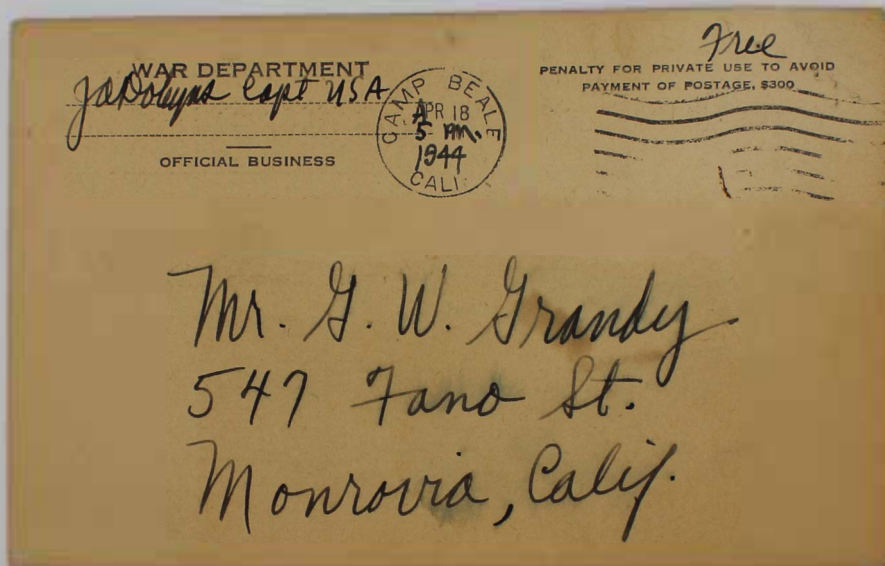 Free
WAR DEPARTMENT
Capt USA
OFFICIAL BUSINESS
CAMP BEALE
APR 18
5 PM
1944
CALIF.
PENALTY FOR PRIVATE USE TO AVOID
PAYMENT OF POSTAGE, $300
Mr. G. W. Grandy
547 Fano St.
Monrovia, Calif.